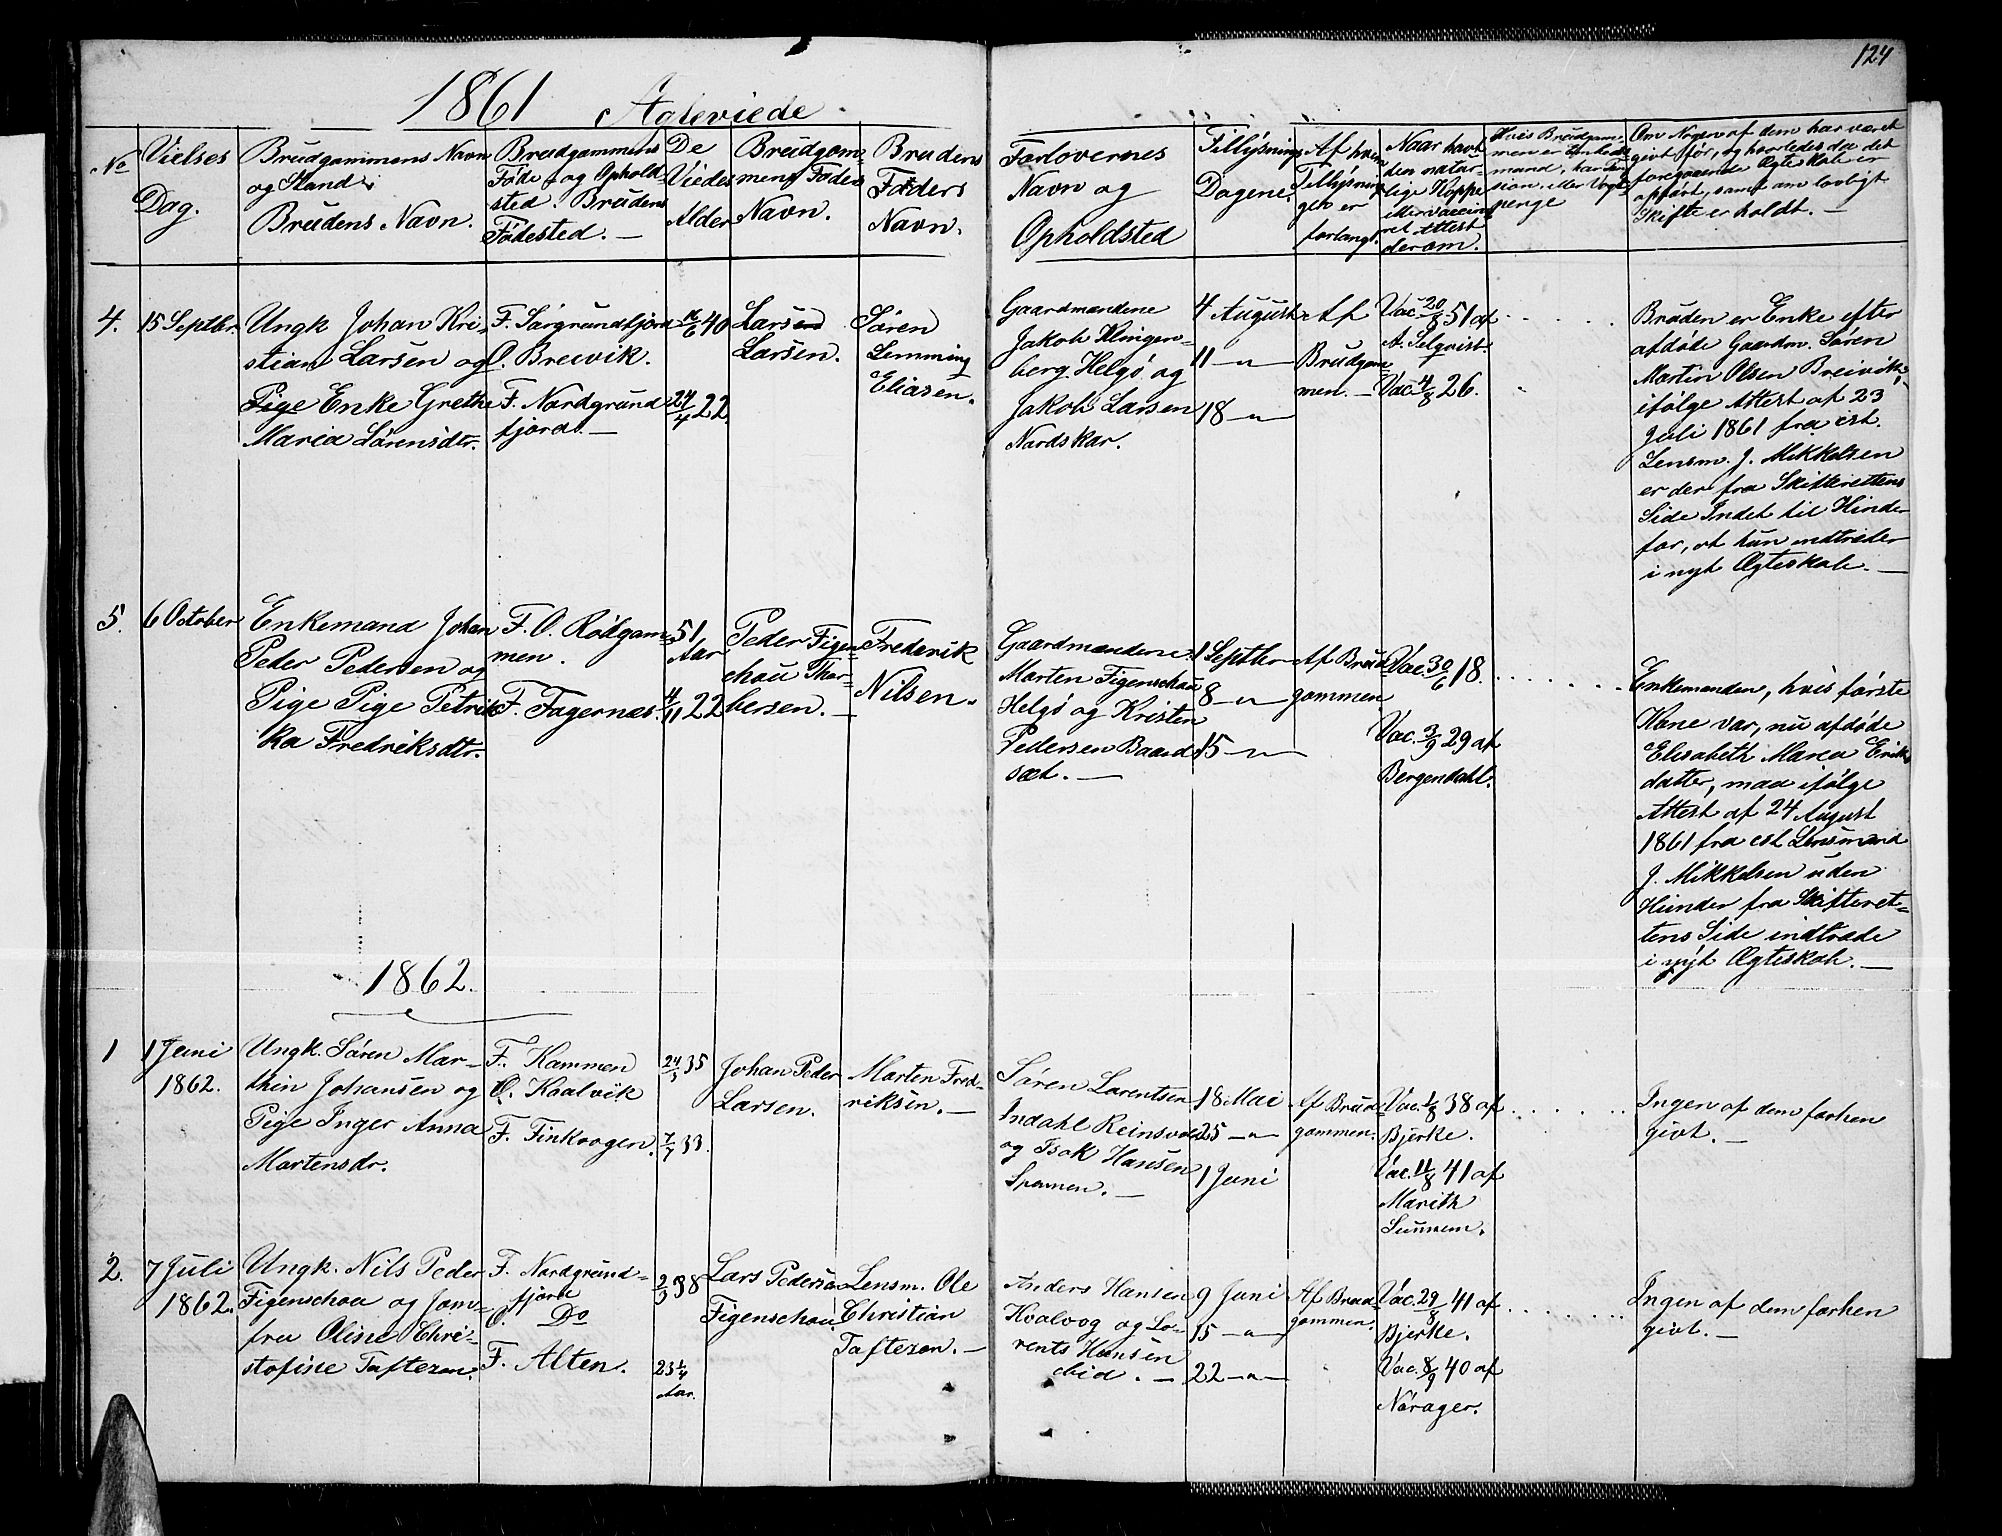 124
1861 Ægteviede.
No
Vielses
Dag.
Brudgommens Navn
og Stand,
Brudens Navn.
Brudgommens
Føde- og Ophold-
sted. Brudens
Fødested. —
De
Viedes
Alder
Brudgom-
mens Faders
Navn.
Brudens
Faders
Navn.
Forlovernes
Navn og
Opholdsted
Tillysnings
Dagene.
Af hvem
Tillysnin-
gen er
forlangt.
Naar havt
den natur-
lige Kopper
eller vaccine-
ret. Attest
derom.
Hvis Brudgom-
men er Enrolle
mand, har Pen-
sion, eller Vagt-
penge
Om Nogen af dem har været
givt før, og hvorledes da det
foregaaende Ægteskab er
ophørt, samt om lovligt
Skifte er holdt. —
4.
15 Septbr
Ungk Johan Kri-
stian Larsen og
Pige Enke Grethe
Maria Sørensdtr.
F. Sørgrundfjord
O. Breivik.
F. Nordgrund
fjord. —
16/6 40
24/4 22
Larsen
Larsen.
Søren
Lemming
Eliasen.
Gaardmændene
Jakob Klingen-
berg Helgø og
Jakob Larsen
Nordskar.
4 August
11 — " —
18 — " —
Af
Brudgom-
men. —
Vac. 20/8 51 af
A. Selqvist.
Vac. 4/8 26.
Bruden er Enke efter
afdøde Gaardm. Søren
Martin Olsen Breivik,
ifølge Attest af 23
Juli 1861 fra cst.
Lensm. J. Mikkelsen
er der fra Skifterettens
Side Intet til Hinder
for, at hun indtræder
i nyt Ægteskab. —
5.
6 October
Enkemand Johan
Peder Pedersen og
Pige Pige Petrik-
ka Fredriksdtr.
F. O. Rødgam-
men.
F. Fagernæs.
51
Aar
4/11 22
Peder Figen-
schou Thor-
bersen. —
Frederik
Nilsen.
Gaardmændene
Morten Figenschau
Helgø og Kristen
Pedersen Baard-
sæt. —
1 Septbr
8 — " —
15 — " —
Af Brud-
gommen
Vac. 30/6 18.
Vac. 3/9 29 af
Bergendahl.
Enkemanden, hvis første
Kone var, nu afdøde
Elisabeth Maria Eriks
datter, maa ifølge
Attest af 24 August
1861 fra cst Lensmand
J. Mikkelsen uden
Hinder fra Skifteret-
tens Side indtræde
i nyt Ægteskab. —
1862.
1
1 Juni
1862.
Ungk. Søren Mar-
thin Johansen og
Pige Inger Anna
Martensdr.
F. Kammen
O. Kaalvik
F. Finkrogen.
24/3 35
7/7 33.
Johan Peder
Larsen.
Morten Fred-
riksen. —
Søren Larentsen
Indahl Reinsvold
og Isak Hansen
18 Mai
25 — " —
1 Juni
Af Brud-
gommen.
Vac. 1/8 38 af
Bjerke.
Vac. 11/8 41 af
Marith
Ingen af dem forhen
givt. —
2.
7 Juli
1862.
Ungk. Nils Peder
Figenschau og Jom-
fru Oline Chri-
stofine Taftezon.
F. Nordgrund-
fjord
O. Do
F. Alten.
2/3 38
23 1/4
Aar.
Lars Pedersen
Figenschau.
Lensm. Ole
Christian
Taftezon. —
Anders Hansen
Hvalvog og Lo-
rents Hansen
ibid. —
9 Juni
15 — " —
22 — " —
Af Brud-
gommen.
Vac. 29/8 41 af
Bjerke.
Vac. 8/9 40 af
Norager.
Ingen af dem forhen
givt. —